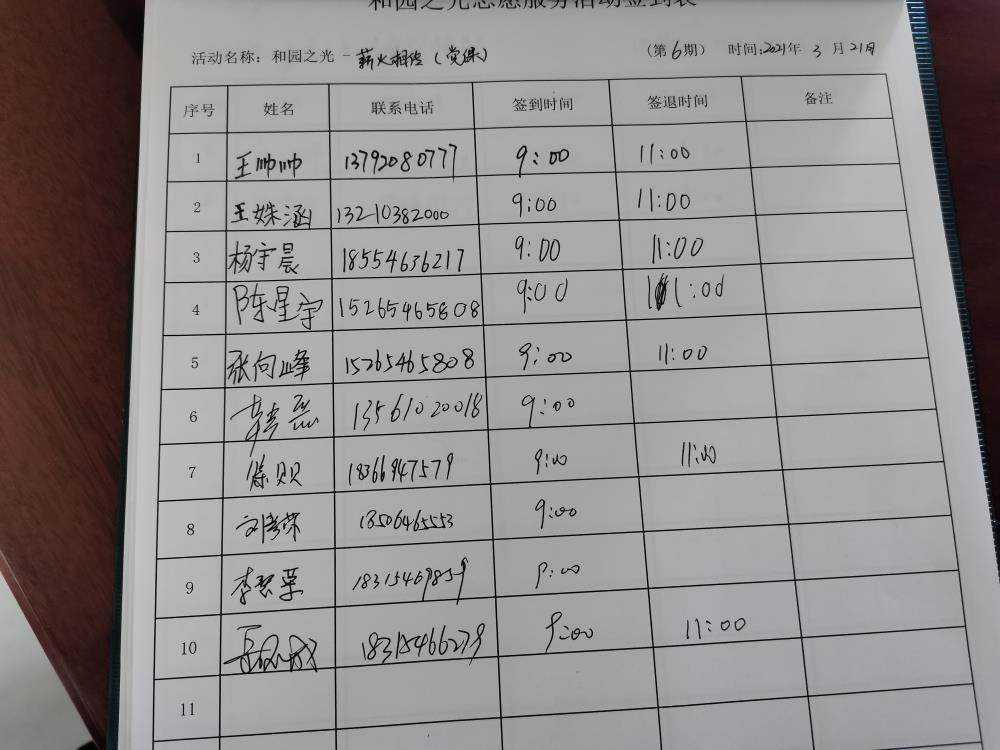 和园之光志愿服务活动签到表
活动名称：和园之光 - 薪火相传（党课） （第6期） 时间：2021年 3 月 21日
序号 姓名 联系电话 签到时间 签退时间 备注
1 王帅帅 13792080777 9:00 11:00
2 王姝涵 13210382000 9:00 11:00
3 杨宇晨 18554636217 9:00 11:00
4 陈星宇 15265465808 9:00 11:00
5 张向峰 15265465808 9:00 11:00
6 13561020018 9:00
7 陈贝 18366947579 9:00 11:00
8 刘孝荣 13506465553 9:00
9 李翠 18315469859 9:00
10 18315466279 9:00 11:00
11